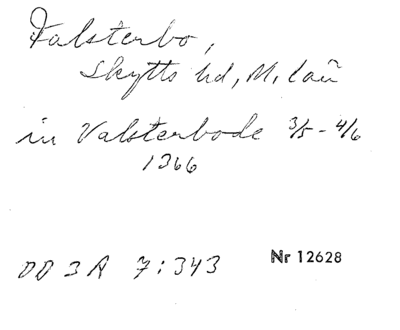 Falsterbo,
Skytts hd, M. län
in Valsterbode 3/5 - 4/6
1366
DD 3A 7:343
Nr 12628